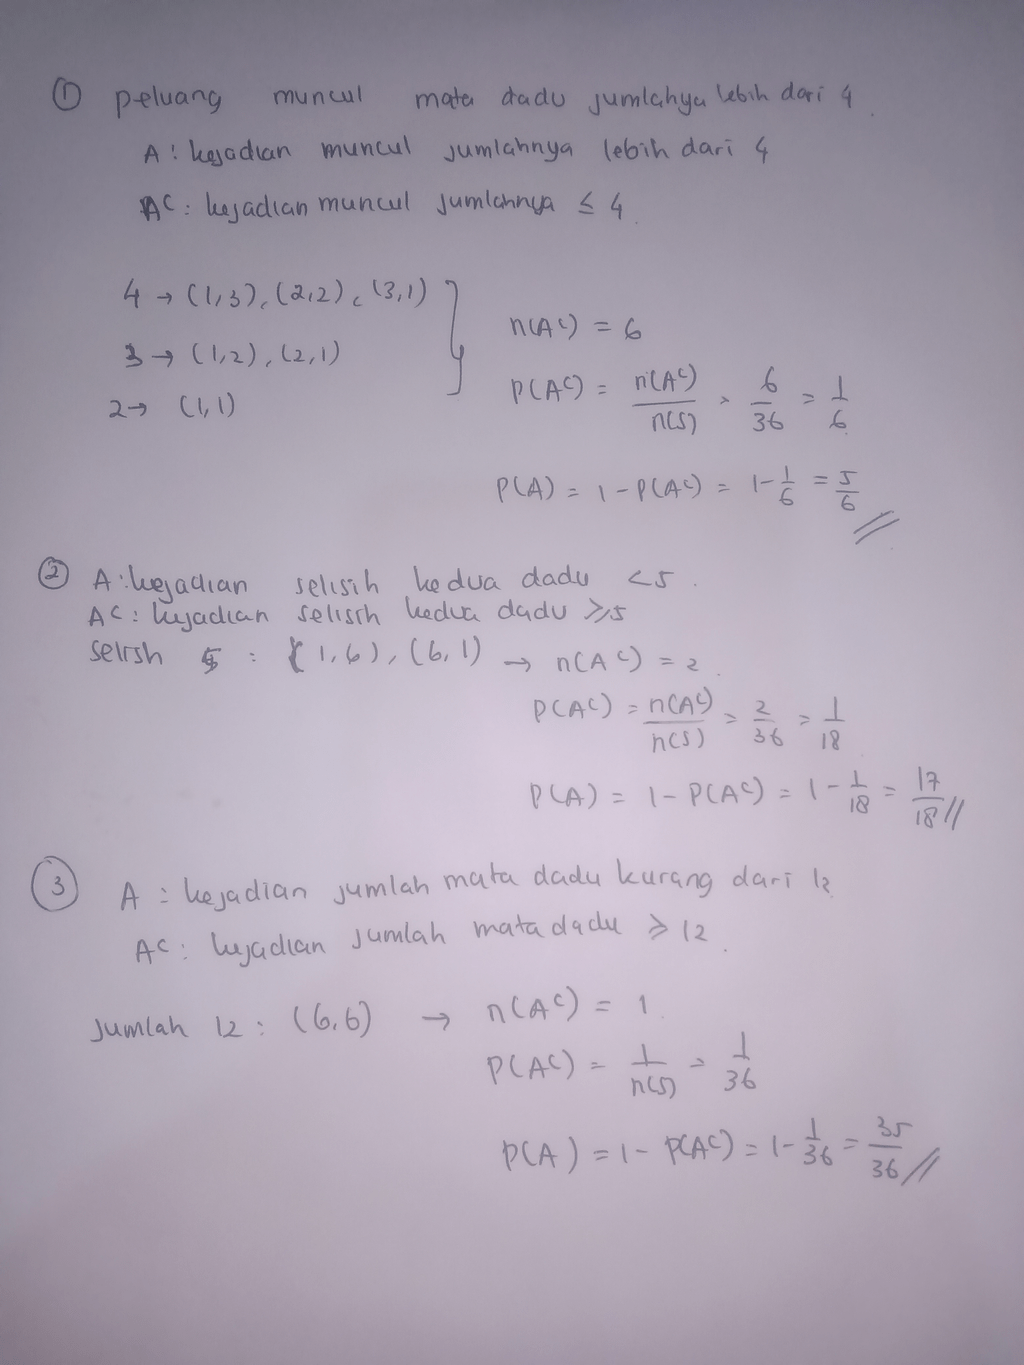 ① peluang muncul mata dadu jumlahya lebih dari 4.
A : kejadian muncul jumlahnya lebih dari 4
Aᶜ : kejadian muncul jumlahnya ≤ 4.
4 → (1,3), (2,2), (3,1)
3 → (1,2), (2,1)
2 → (1,1)
n(Aᶜ) = 6
P(Aᶜ) = n(Aᶜ)/n(S) = 6/36 = 1/6
P(A) = 1 - P(Aᶜ) = 1 - 1/6 = 5/6 //
② A : kejadian selisih kedua dadu < 5.
Aᶜ : kejadian selisih kedua dadu ≥ 5
selisih 5 : (1,6), (6,1) → n(Aᶜ) = 2.
P(Aᶜ) = n(Aᶜ)/n(S) = 2/36 = 1/18
P(A) = 1 - P(Aᶜ) = 1 - 1/18 = 17/18 //
③ A : kejadian jumlah mata dadu kurang dari 12
Aᶜ : kejadian jumlah mata dadu ≥ 12.
Jumlah 12 : (6,6) → n(Aᶜ) = 1.
P(Aᶜ) = 1/n(S) = 1/36
P(A) = 1 - P(Aᶜ) = 1 - 1/36 = 35/36 //